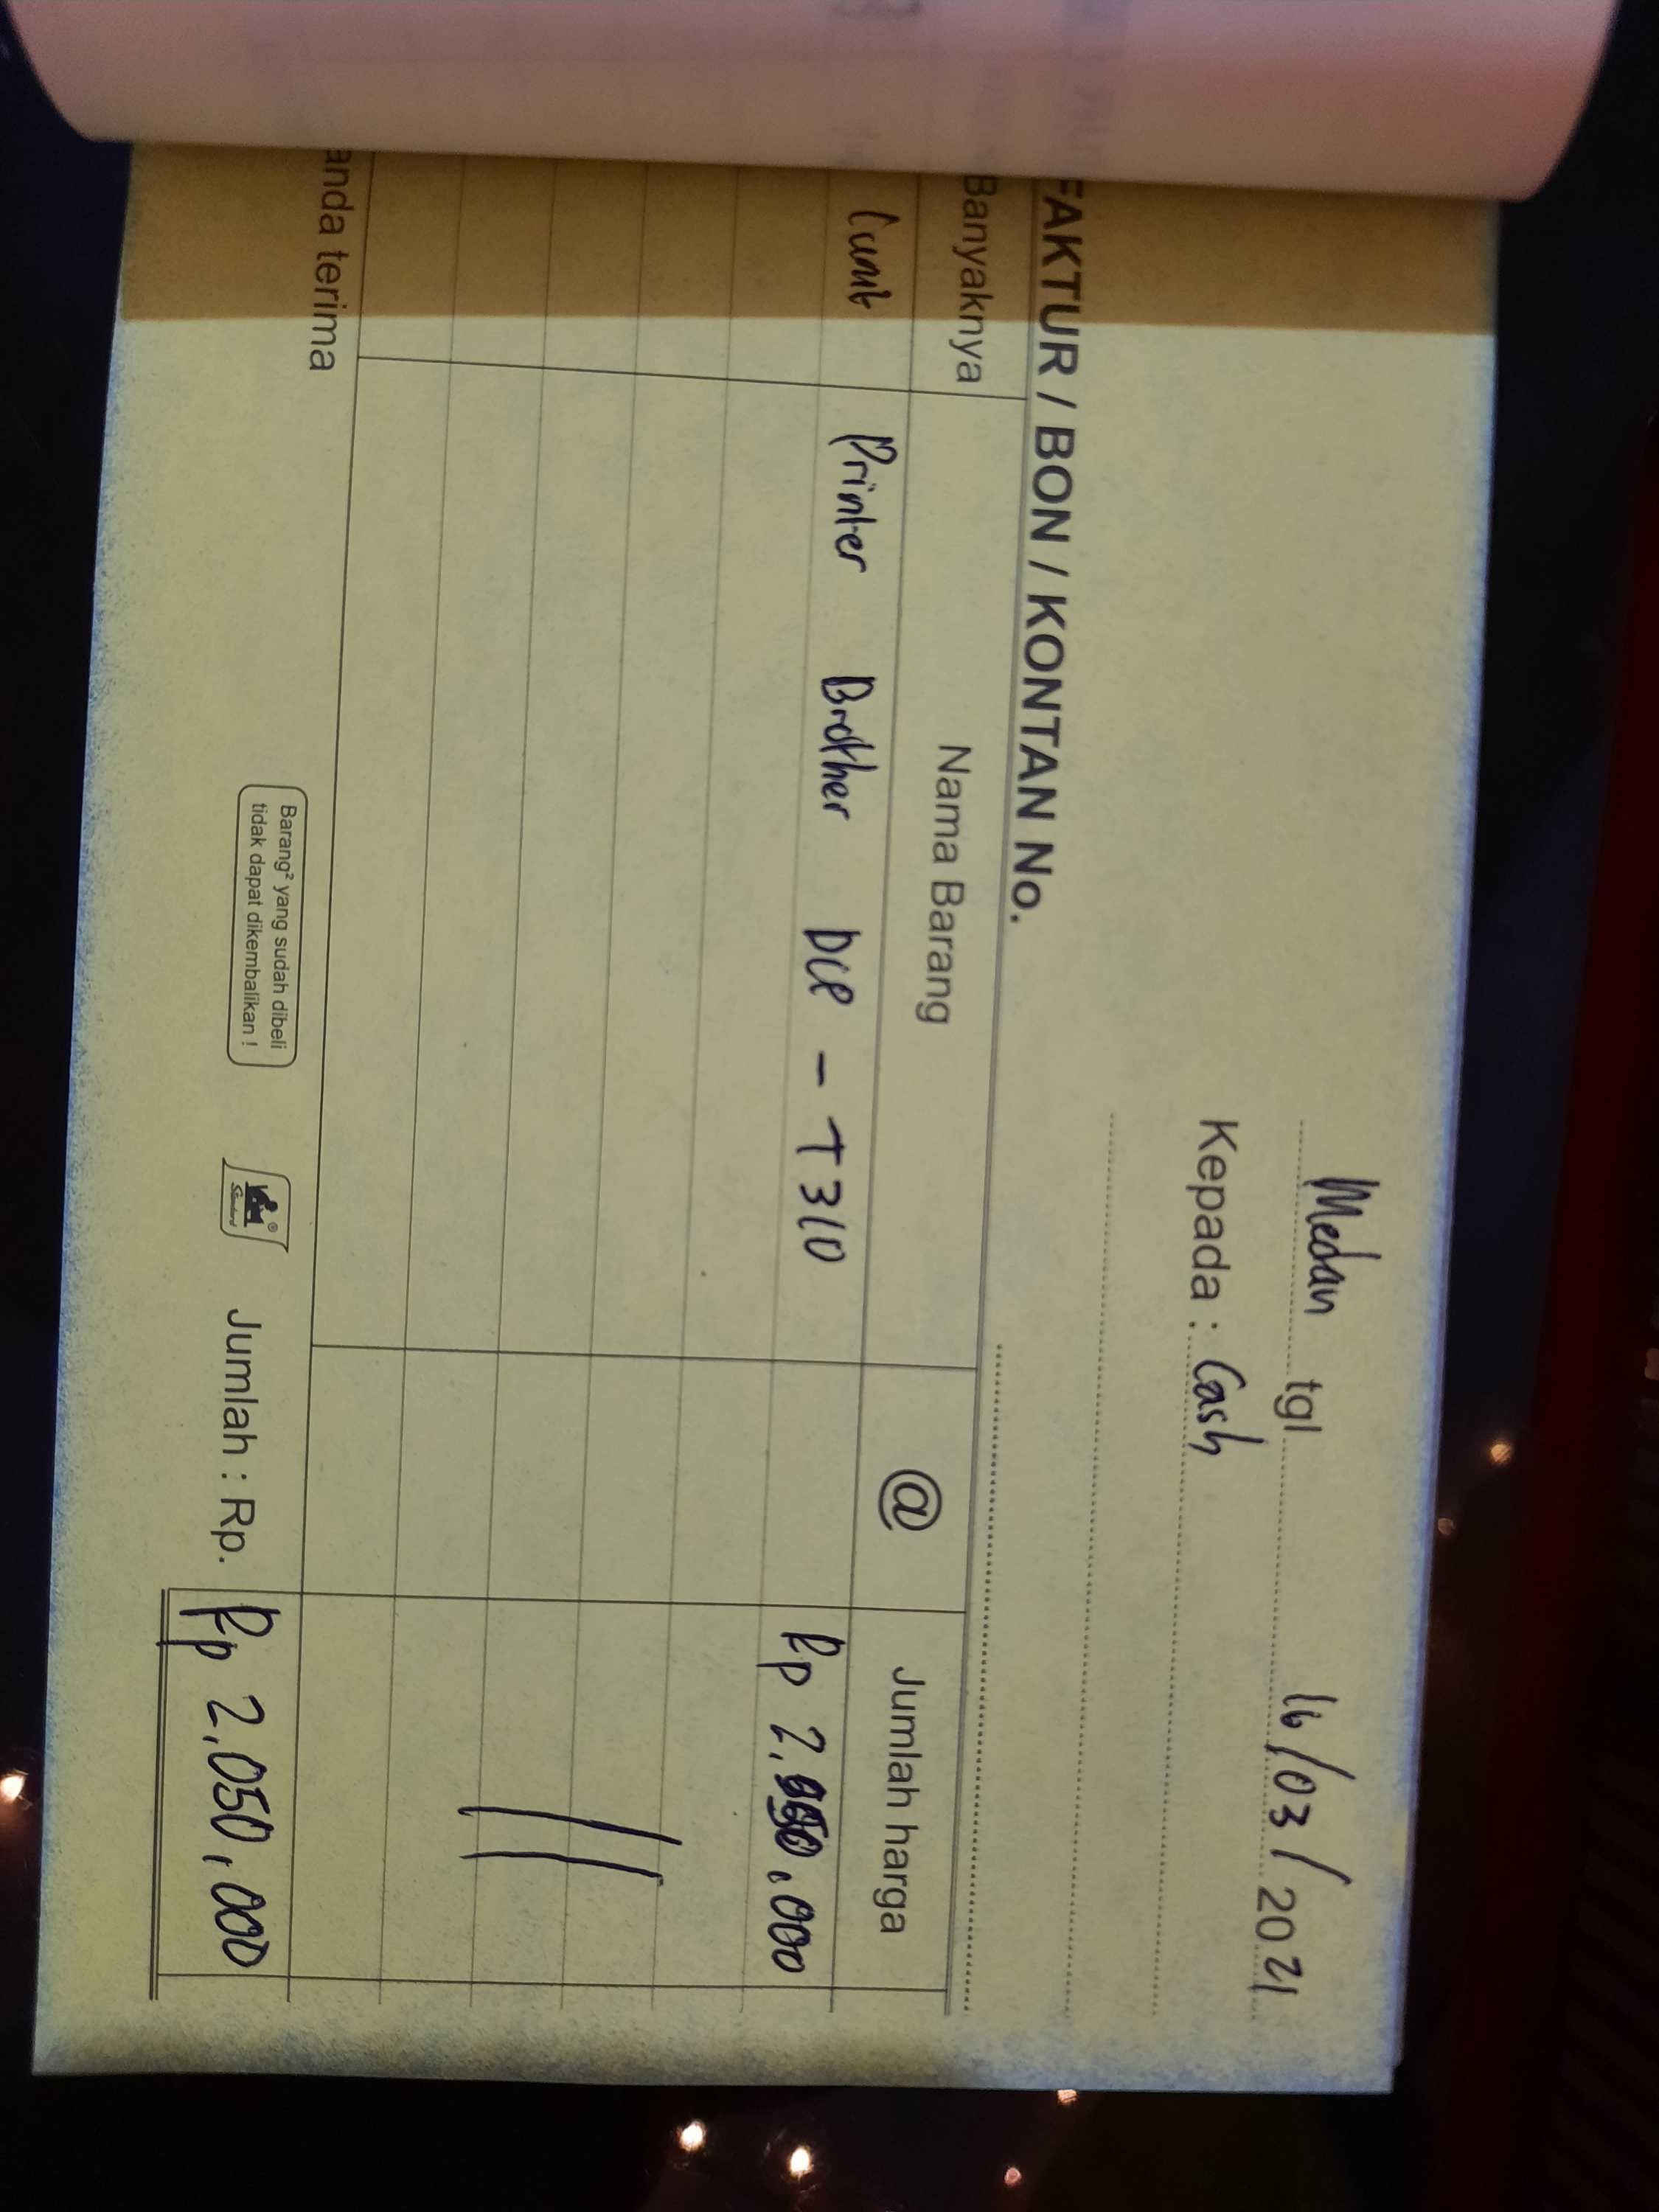 Medan tgl 16/03/2021
Kepada : Cash
FAKTUR / BON / KONTAN No.
Banyaknya Nama Barang @ Jumlah harga
1 unit Printer Brother DCP - T310 Rp 2.050.000
anda terima
Barang² yang sudah dibeli
tidak dapat dikembalikan !
Standard
Jumlah : Rp. Rp 2.050.000